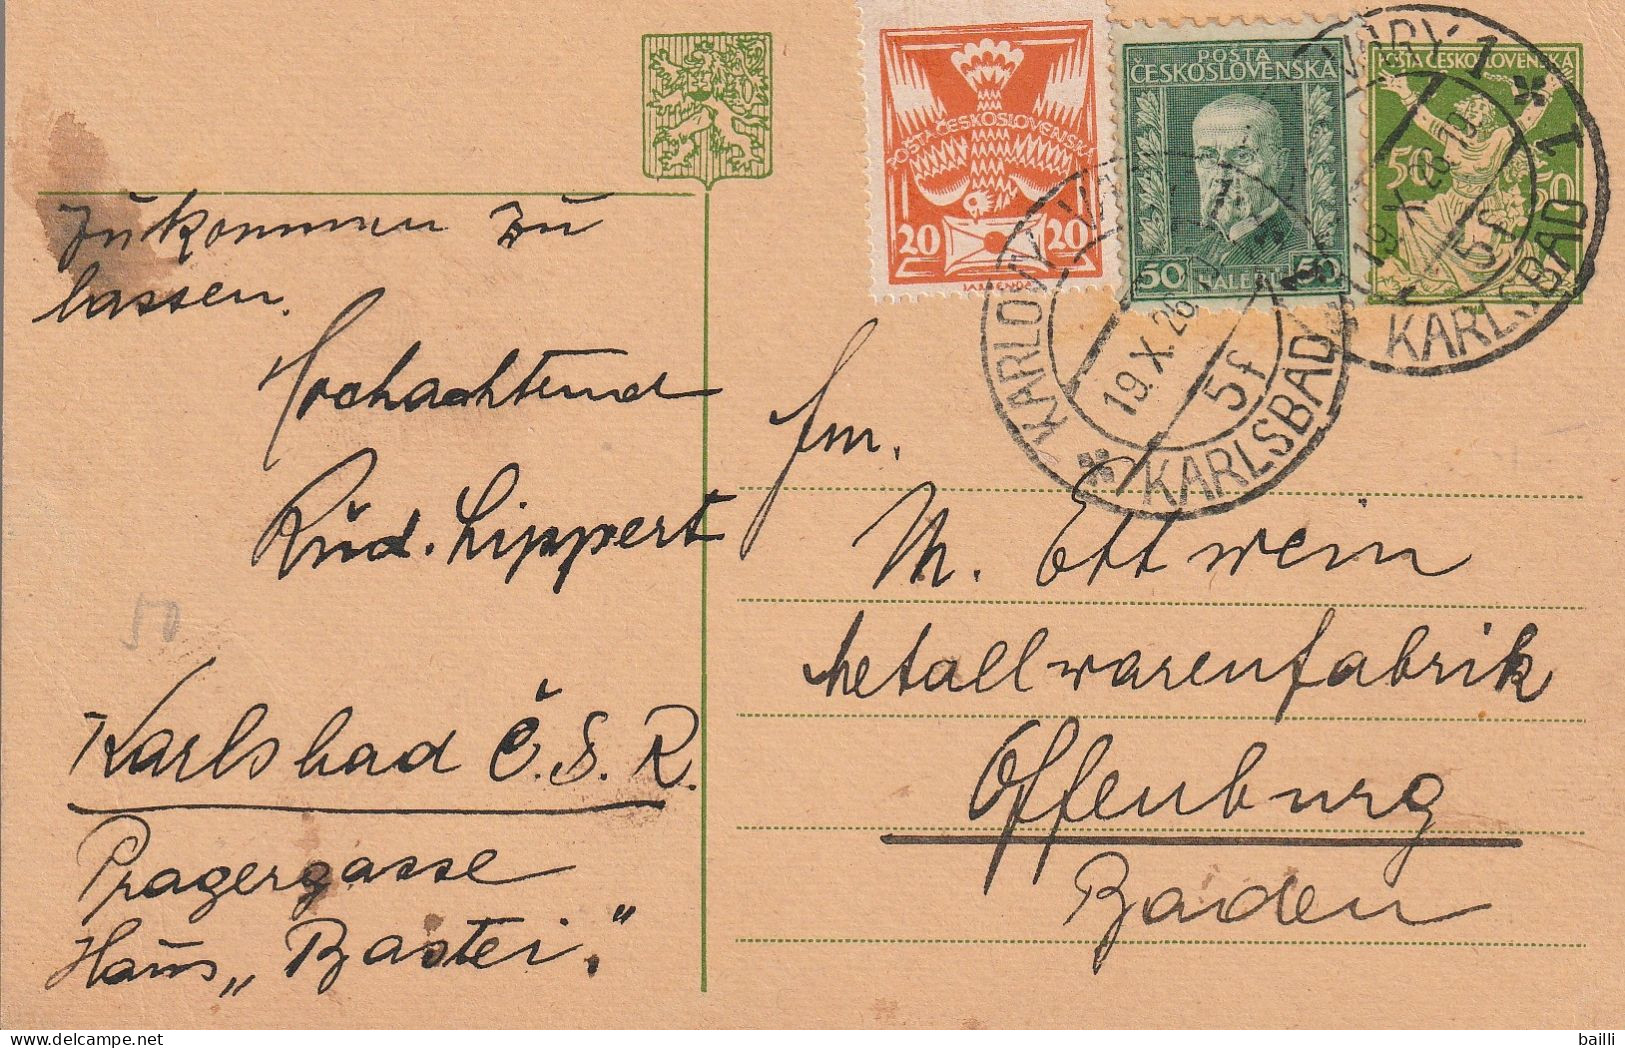 zukommen zu
lassen.
Hochachtend
Rud. Lippert
50
Karlsbad Č.S.R.
Pragergasse
Haus „Bastei."
POSTA ČESKOSLOVENSKA
20 20
POSTA
ČESKOSLOVENSKA
50 HALERU 50
POSTA ČESKOSLOVENSKA
50 50
KARLOVY VARY 1
19.X.26.19
5f
KARLSBAD 1
KARLOVY VARY
19.X.26
5f
KARLSBAD
fm.
M. Ettwein
Metallwarenfabrik
Offenburg
Baden
delcampe.net
bailli